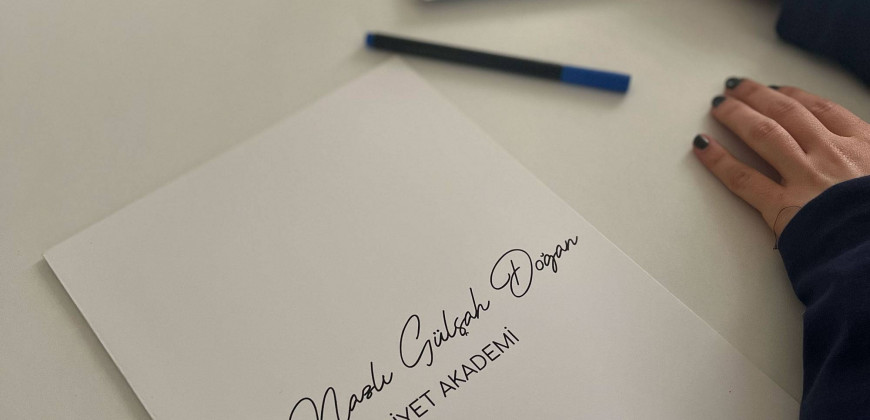 Naslı Gülşah Doğan
İYET AKADEMİ